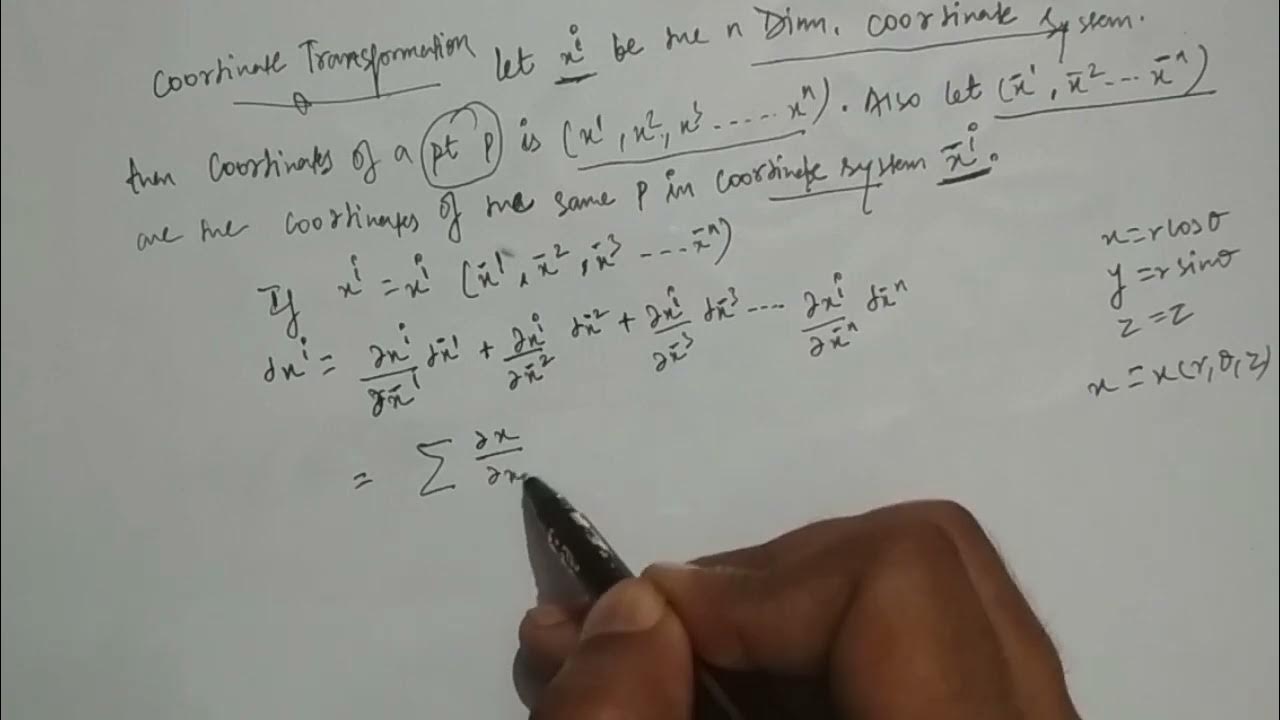 Coordinate Transformation let xⁱ be the n Dim. coordinate system.
then coordinates of a pt P is (x¹, x², x³ ...... xⁿ). Also let (x̄¹, x̄² ... x̄ⁿ)
are the coordinates of the same P in coordinate system x̄ⁱ.
If xⁱ = xⁱ (x̄¹, x̄², x̄³ ---- x̄ⁿ)
dxⁱ = ∂xⁱ/∂x̄¹ dx̄¹ + ∂xⁱ/∂x̄² dx̄² + ∂xⁱ/∂x̄³ dx̄³ ---- ∂xⁱ/∂x̄ⁿ dx̄ⁿ
= Σ ∂x/∂x
x = r cosθ
y = r sinθ
z = z
x = x(r, θ, z)